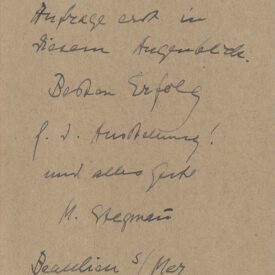 Anfrage erst in
diesem Augenblick.
Besten Erfolg
f. d. Ausstellung!
und alles Gute
H. Stegmann
Beaulieu s/Mer